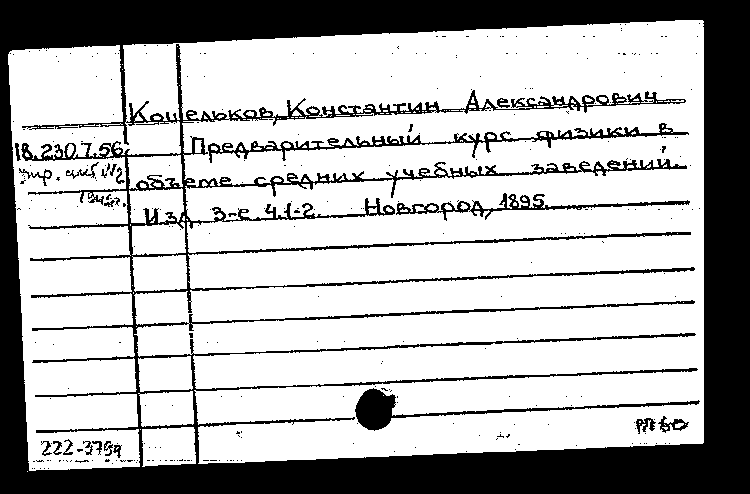 Кошельков, Константин Александрович
18.230.7.56. Предварительный курс физики в
объеме средних учебных заведений.
Изд. 3-е Ч.1-2. Новгород, 1895.